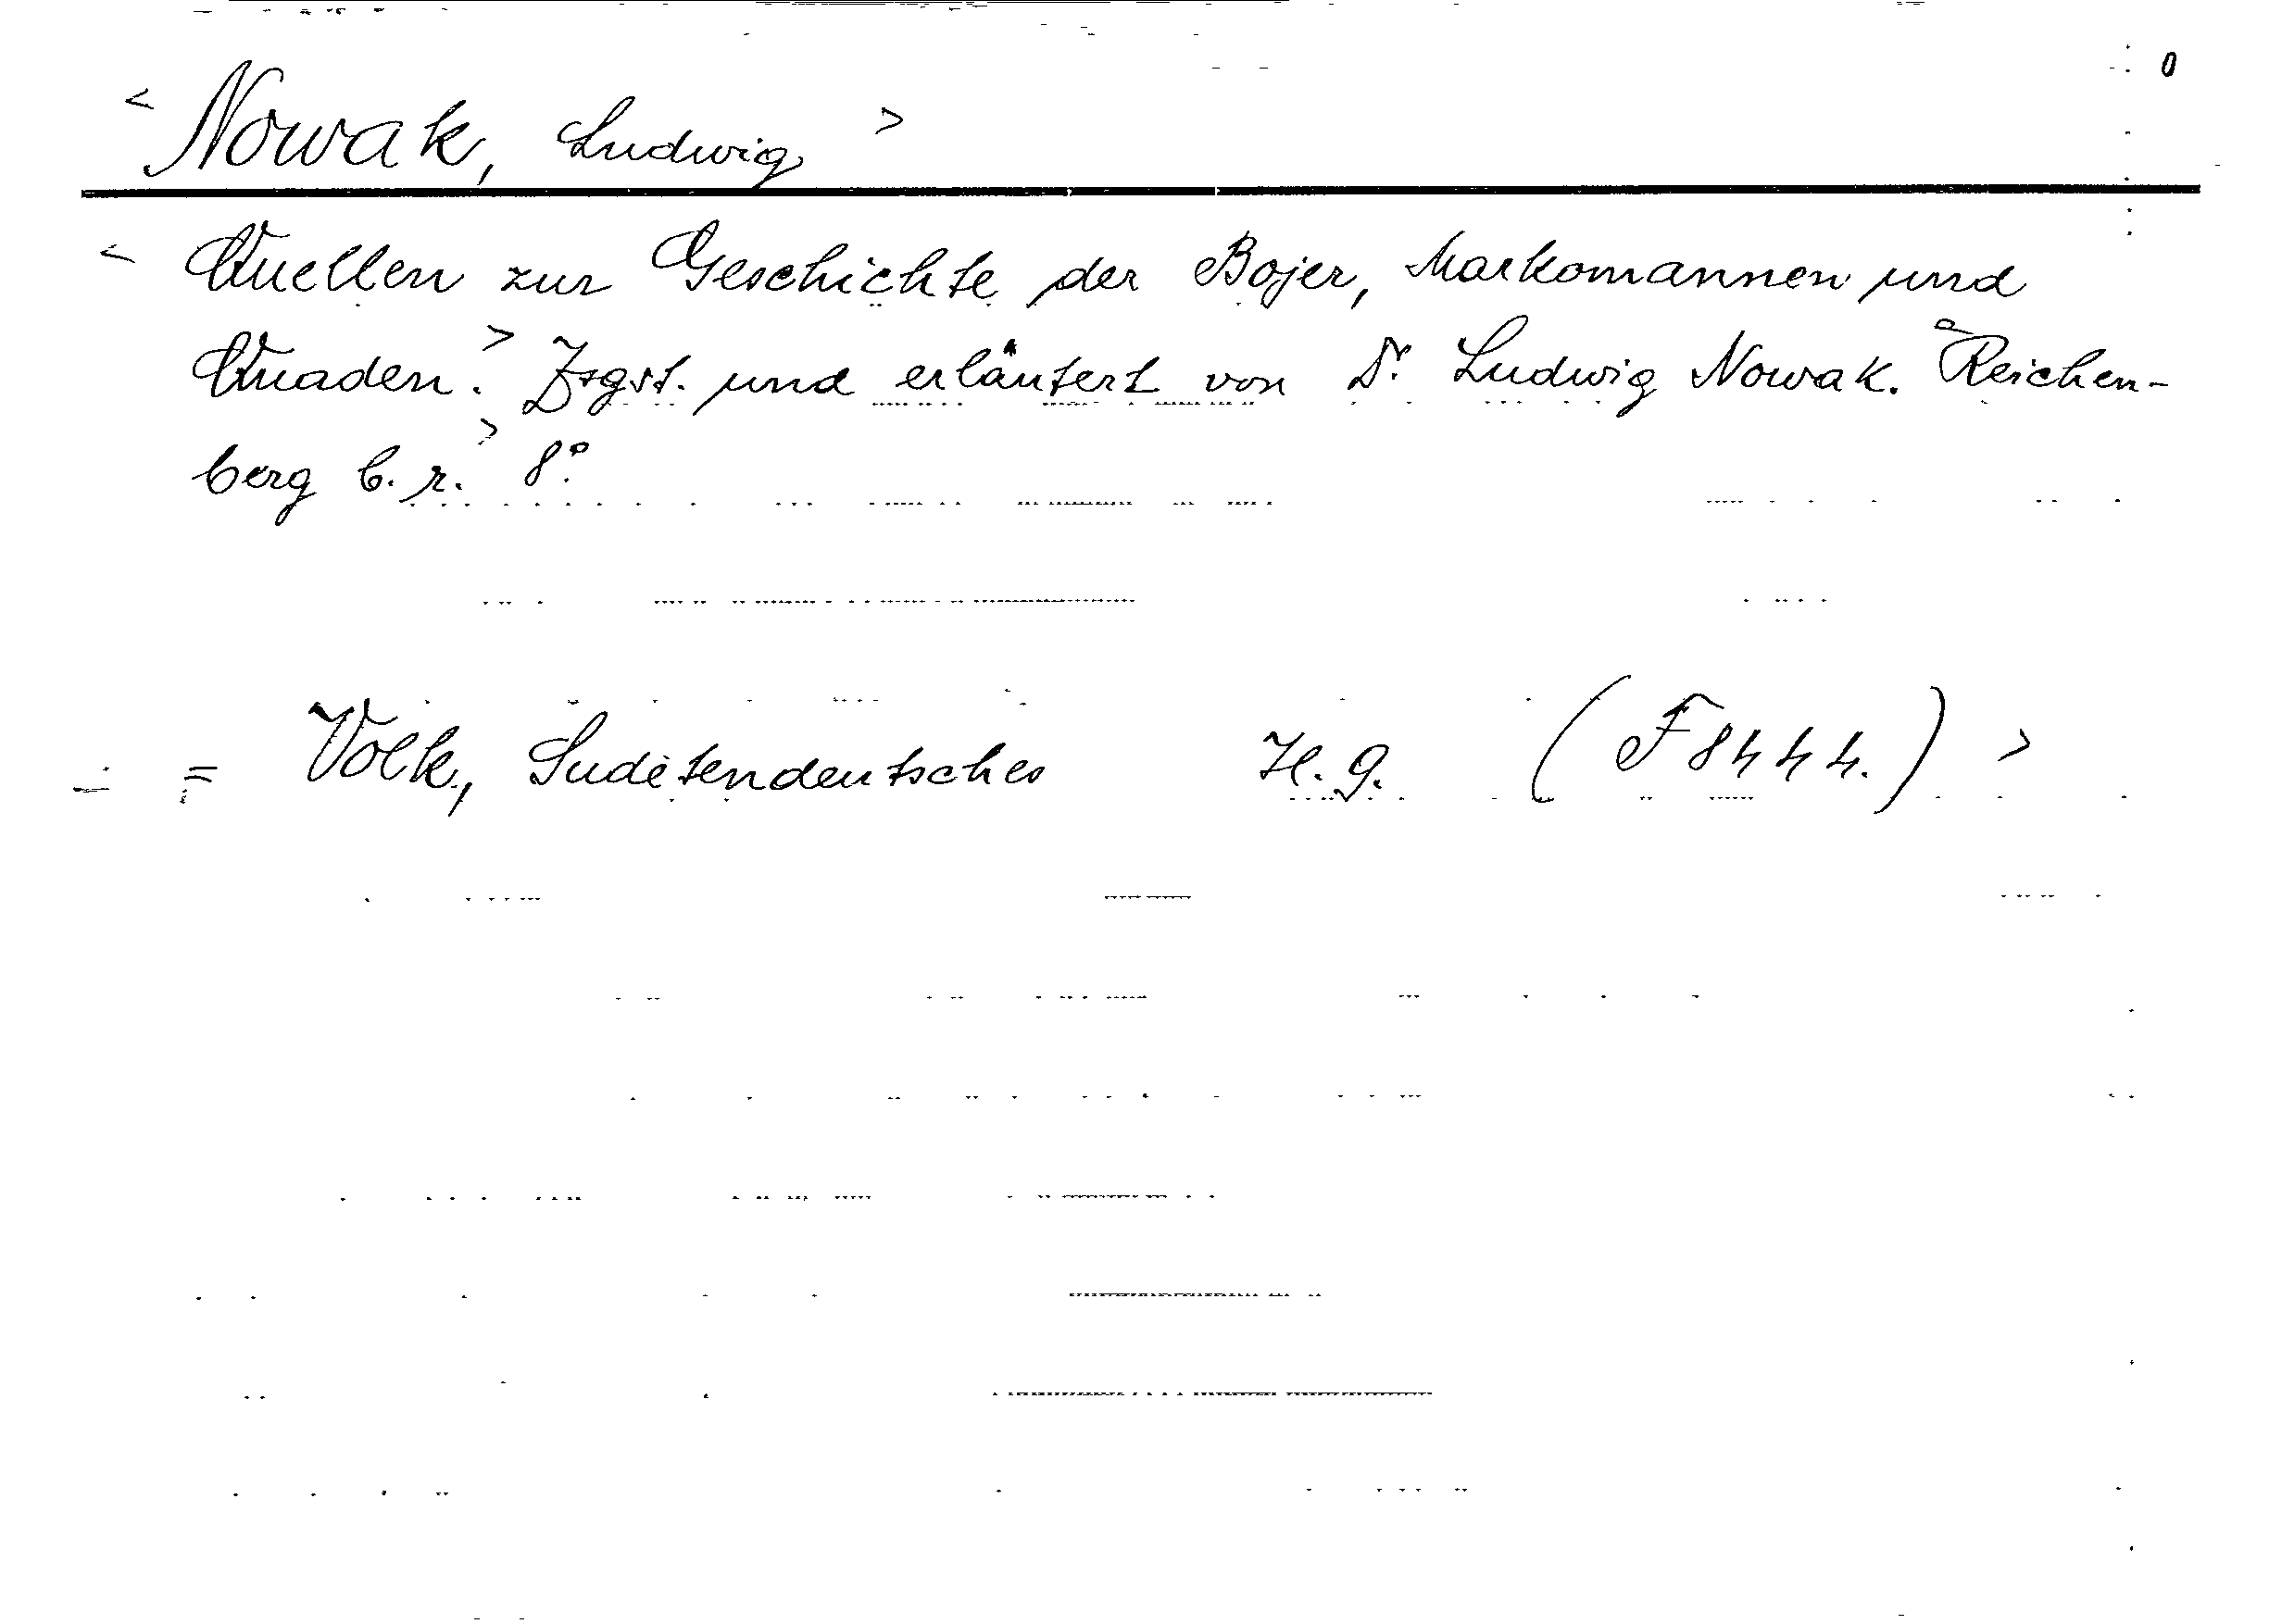 0
< Nowak, Ludwig >
< Quellen zur Geschichte der Bojer, Markomannen und
Quaden.> Zsgst. und erläutert von Dr. Ludwig Nowak. Reichen-
berg b. r.> 8°.
= Volk, Sudetendeutsches H. 9. (F 8444.) >